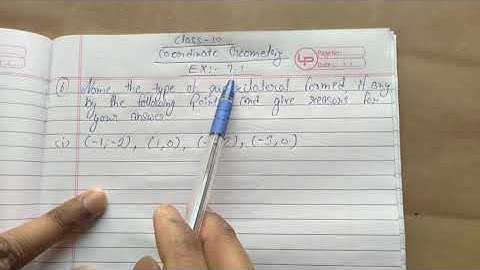 Class-10
Coordinate Geometry
EX:- 7.1
Page No:
Date:
6) Name the type of quadrilateral formed if any
by the following Points and give reasons for
your answer
(i) (-1,-2), (1,0), (- 2), (-3,0)